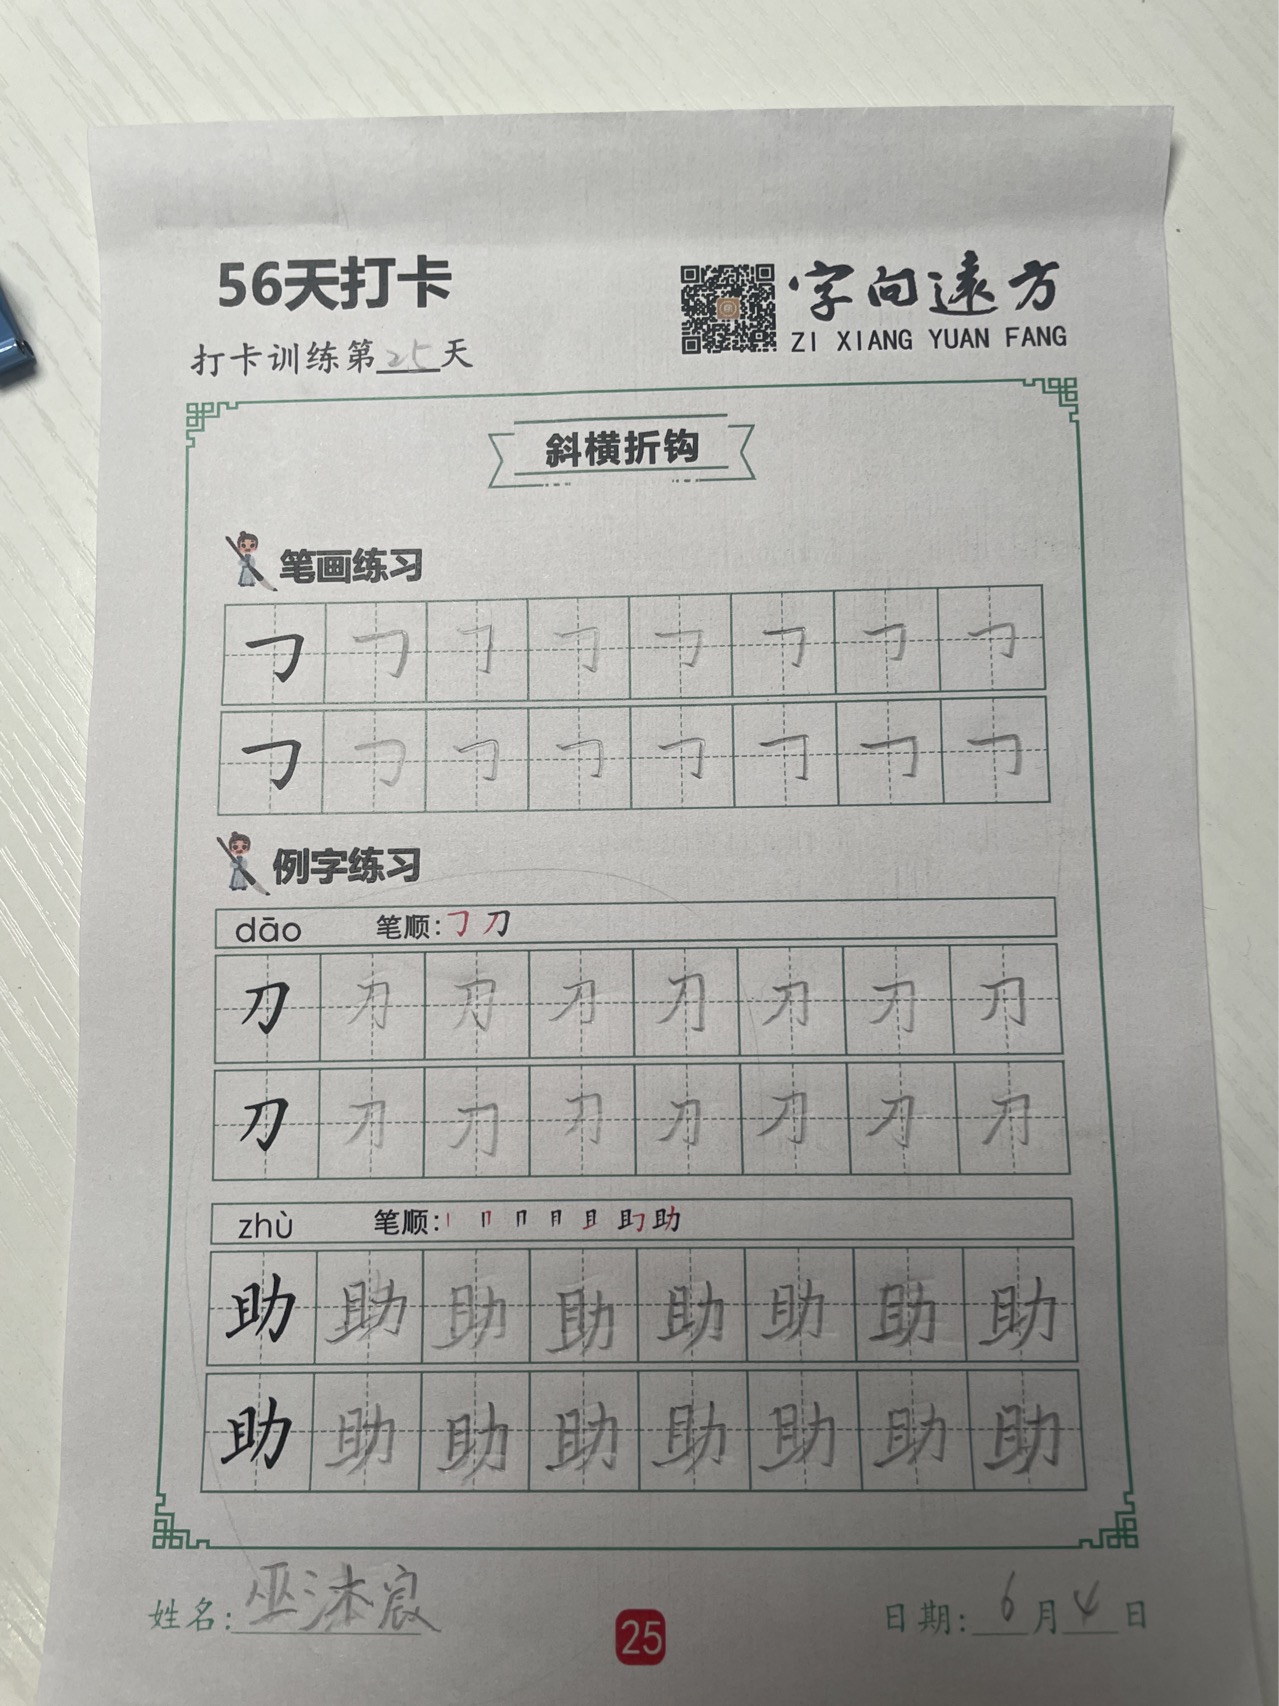 56天打卡
字向遠方
ZI XIANG YUAN FANG
打卡训练第25天
斜横折钩
笔画练习
㇆ ㇆ ㇆ ㇆ ㇆ ㇆ ㇆ ㇆
㇆ ㇆ ㇆ ㇆ ㇆ ㇆ ㇆ ㇆
例字练习
dāo 笔顺:㇆ 刀
刀 刀 刀 刀 刀 刀 刀 刀
刀 刀 刀 刀 刀 刀 刀 刀
zhù 笔顺:丨 冂 冂 月 且 助
助 助 助 助 助 助 助 助
助 助 助 助 助 助 助 助
姓名:巫沐宸
25
日期:6月4日